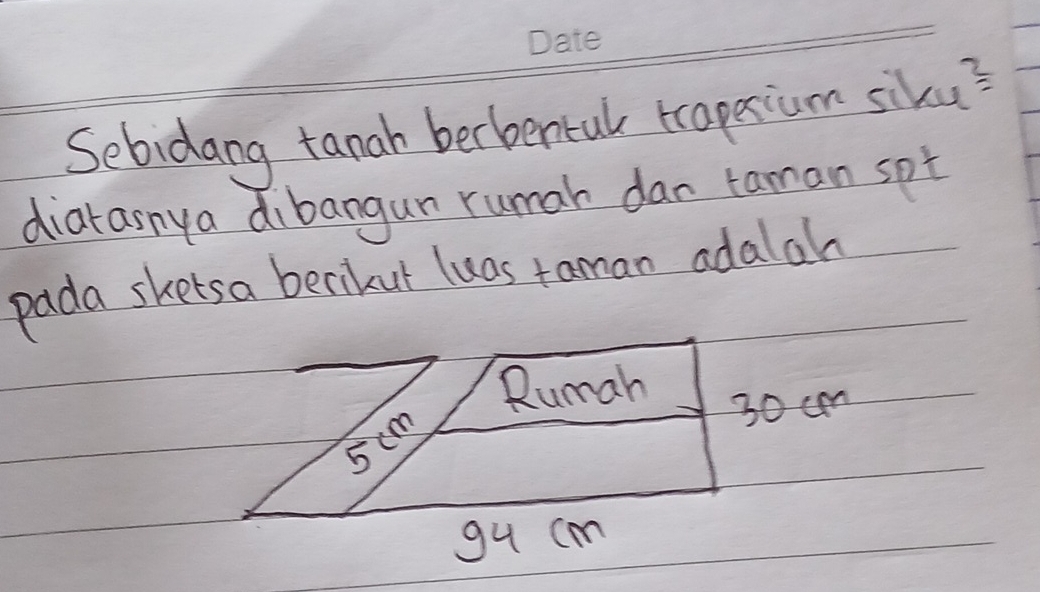 Date
Sebidang tanah berbentuk trapesium siku²
diatasnya dibangun rumah dan taman spt
pada sketsa berikut luas taman adalah
Rumah
5 cm
30 cm
94 cm